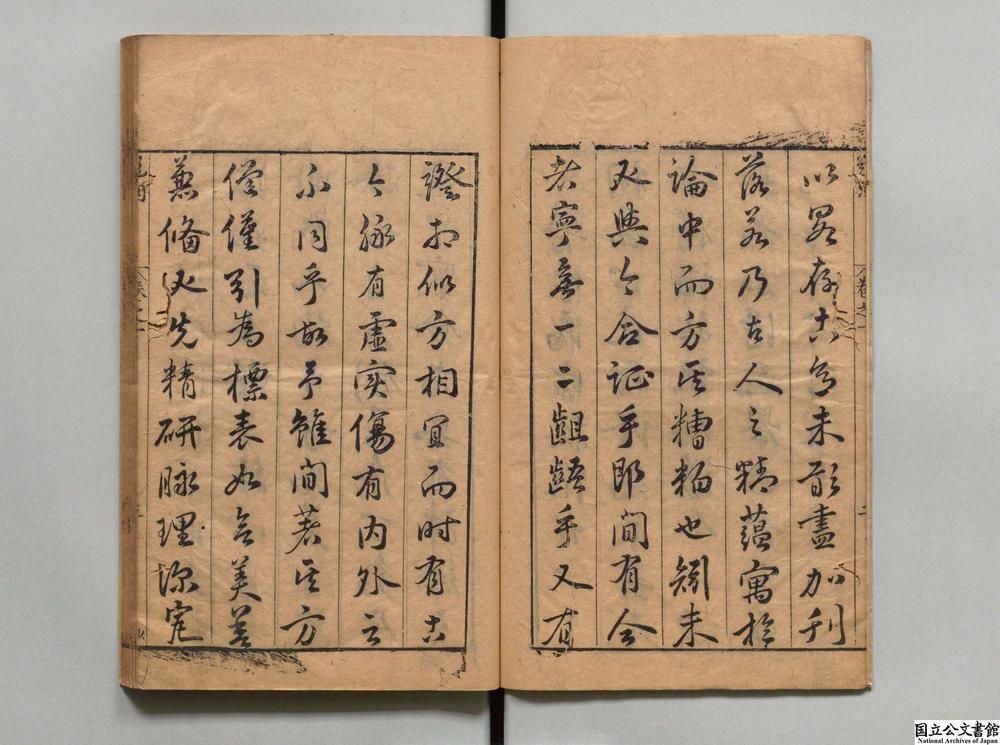 以畧存十未能盡加刊
落若乃古人之精蘊寓於
論中而方其糟粕也矧未
必與今合证乎即間有合
者寧無一二齟齬乎又有
證相似方相宜而时有古
今脉有虛实傷有内外之
不同乎故予雖間著其方
僅僅引為標表如美善
兼脩必先精研脉理深究
卷之一
二
卷之一
三
国立公文書館
National Archives of Japan